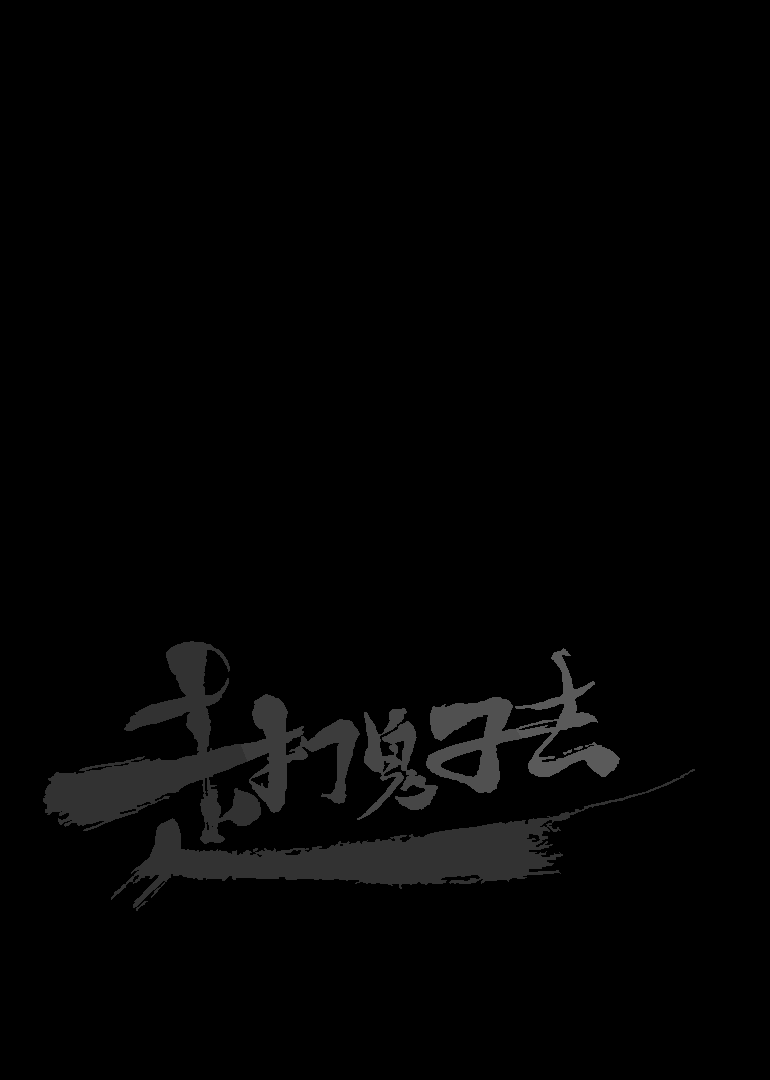 走打鬼子去